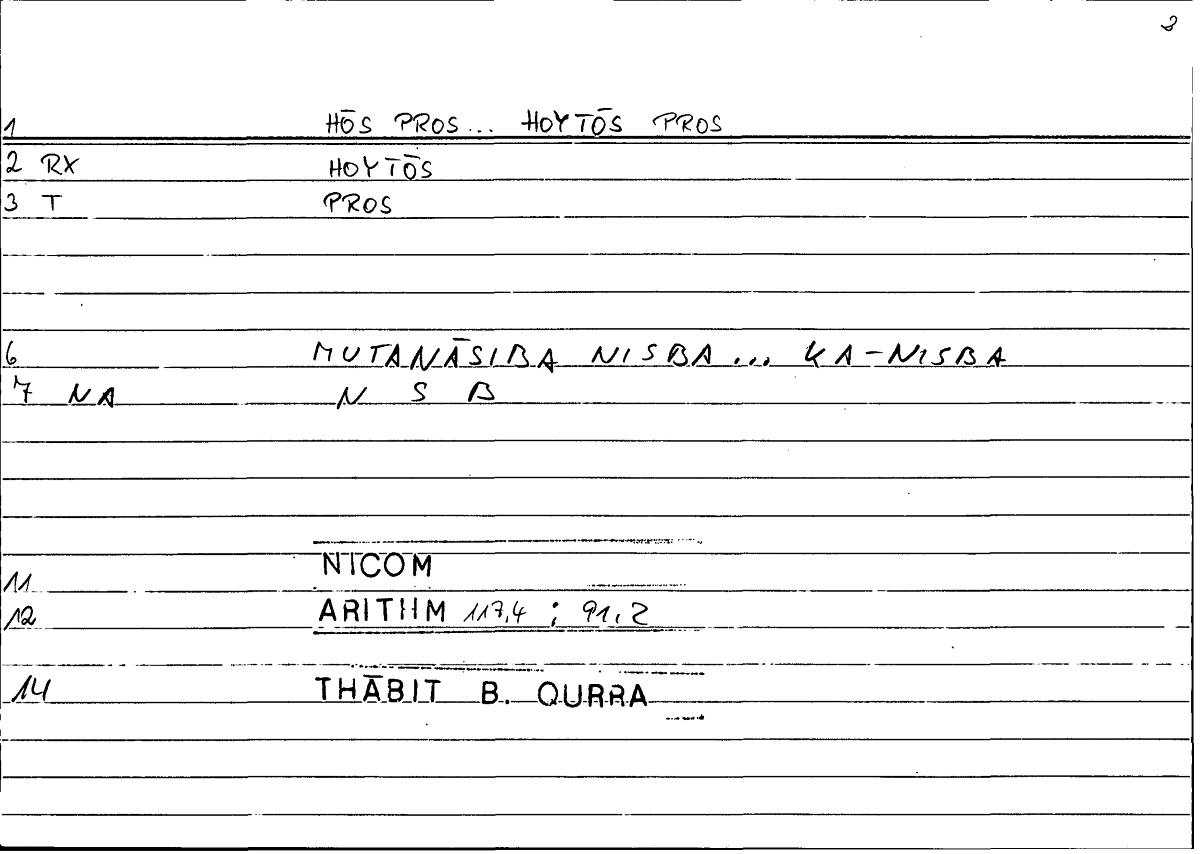 3
1 HŌS PROS... HOYTŌS PROS
2 RX HOYTŌS
3 T PROS
6 MUTANĀSIBA NISBA... KA-NISBA
7 NA N S B
11 NICOM
12 ARITHM 117,4 ; 91,2
14 THĀBIT B. QURRA